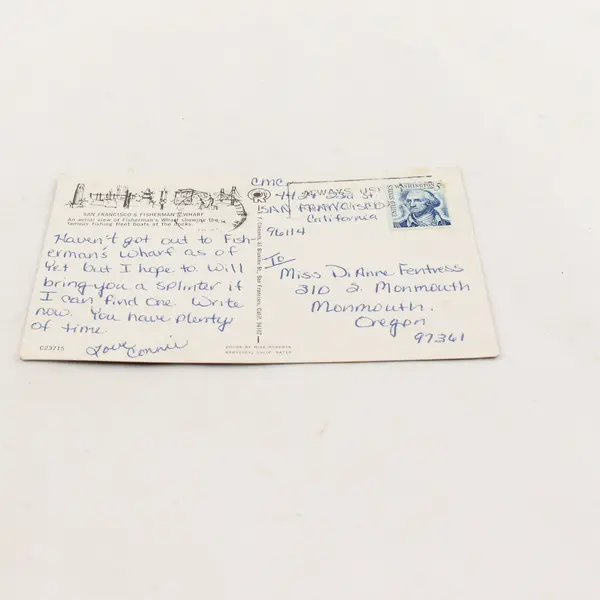 SAN FRANCISCO'S FISHERMAN'S WHARF
An aerial view of Fisherman's Wharf showing the
famous fishing fleet boats at the docks.
Haven't got out to Fish-
erman's wharf as of
yet but I hope to. Will
bring you a splinter if
I can find one. Write
now. You have plenty
of time.
Love,
Connie
C23715
San Francisco, Calif. 94107
COLOR BY MIKE ROBERTS
BERKELEY, CALIF. 94710
CMC
SAN FRANCISCO
California
96114
ALWAYS USE
UNITED STATES
WASHINGTON 5c
To
Miss DiAnne Fentress
310 S. Monmouth
Monmouth.
Oregon
97361